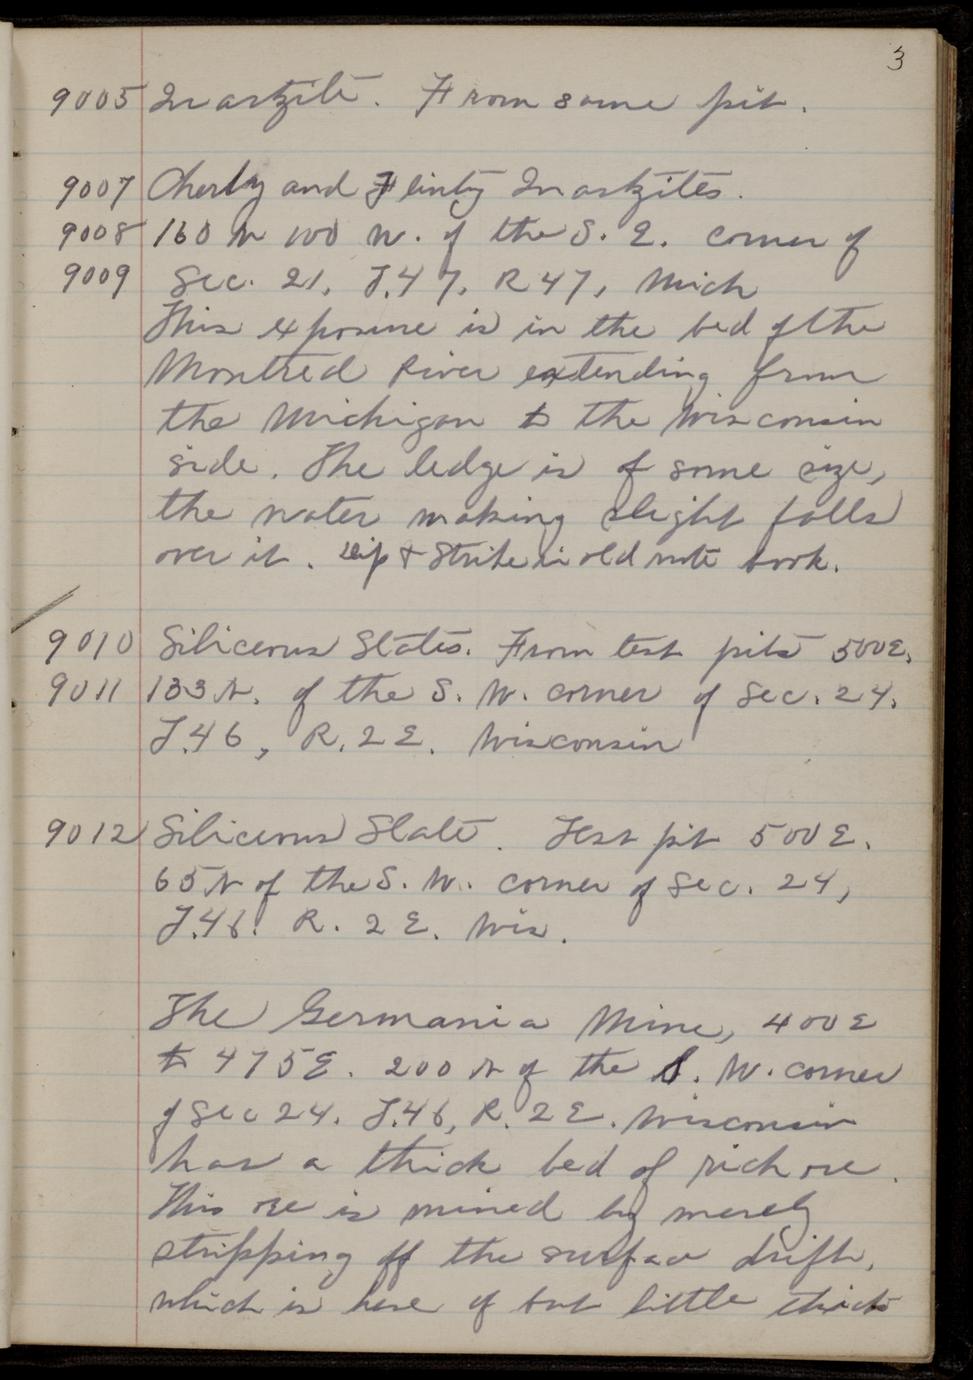 3
9005 Quartzite. From same pit.
9007 Cherty and Flinty Quartzites.
9008 160 N 100 W. of the S. E. corner of
9009 Sec. 21, T.47, R 47, Mich
This exposure is in the bed of the
Montreal River extending from
the Michigan to the Wisconsin
side. The ledge is of some size,
the water making slight falls
over it. Dip & Strike in old note book.
9010 Silicerus Slates. From test pits 500E.
9011 133 N. of the S. W. corner of Sec. 24.
T.46, R. 2 E. Wisconsin
9012 Silicerus Slate. Test pit 500 E.
65 N of the S. W. corner of Sec. 24,
T.46. R. 2 E. Wis.
The Germania Mine, 400 E
to 475 E. 200 N of the S. W. corner
of Sec 24. T.46, R. 2 E. Wisconsin
has a thick bed of rich ore.
This ore is mined by merely
stripping off the surface drift,
which is here of but little thick